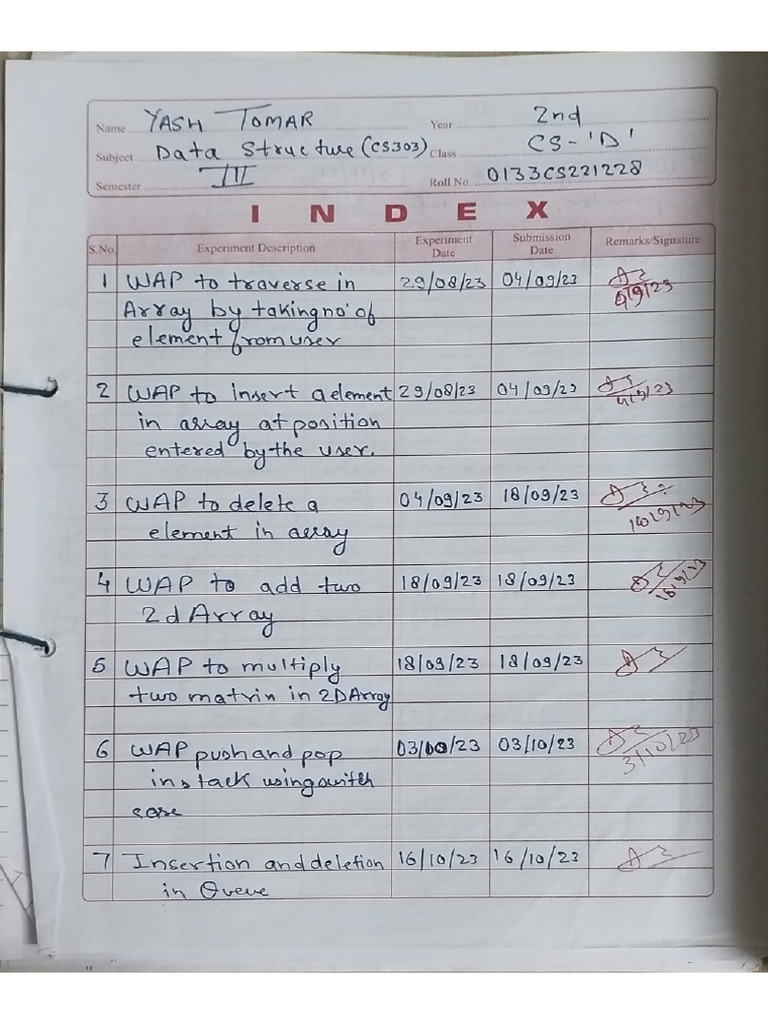 Name YASH TOMAR Year 2nd
Subject Data Structure (CS303) Class CS-'D'
Semester III Roll No. 0133CS221228
INDEX
S.No. Experiment Description Experiment Date Submission Date Remarks/Signature
1 WAP to traverse in 29/08/23 04/09/23
Array by taking no. of 4/9/23
element from user
2 WAP to insert a element 29/08/23 04/09/23
in array at position 4/9/23
entered by the user.
3 WAP to delete a 04/09/23 18/09/23
element in array
4 WAP to add two 18/09/23 18/09/23
2d Array
5 WAP to multiply 18/09/23 18/09/23
two matrin in 2D Array
6 WAP push and pop 03/10/23 03/10/23
in stack using swith 3/10/23
case
7 Insertion and deletion 16/10/23 16/10/23
in Queue